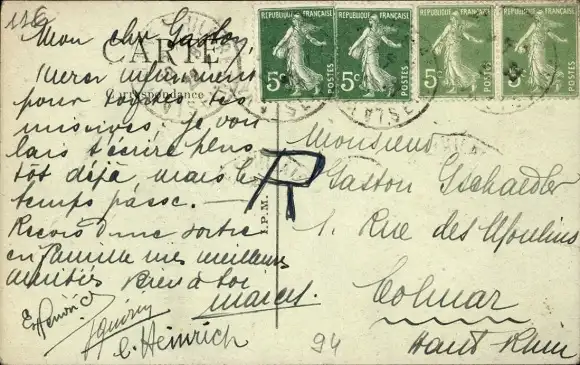 116
Mon cher Gaston,
CARTE
Correspondance
Merci infiniment
pour toutes tes
missives, je vou
lais t'écrire plus
tôt déjà, mais le
temps passe. —
Reçois d'une sortie
en famille mes meilleures
amitiés Bien à toi
Marcel.
E. Heinrich
C. Heinrich
REPUBLIQUE FRANÇAISE
5c
REPUBLIQUE FRANÇAISE
5c
REPUBLIQUE FRANÇAISE
5c
REPUBLIQUE FRANÇAISE
5c
I.P.M.
Monsieur
Gaston Gschaedler
1. Rue des Moulins
Colmar
Haut Rhin
94